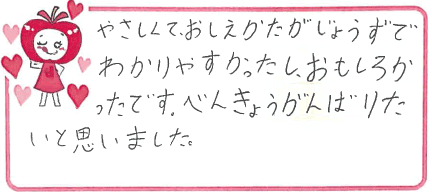 やさしくて、おしえかたがじょうずで
わかりやすかったし、おもしろか
ったです。べんきょうがんばりた
いと思いました。